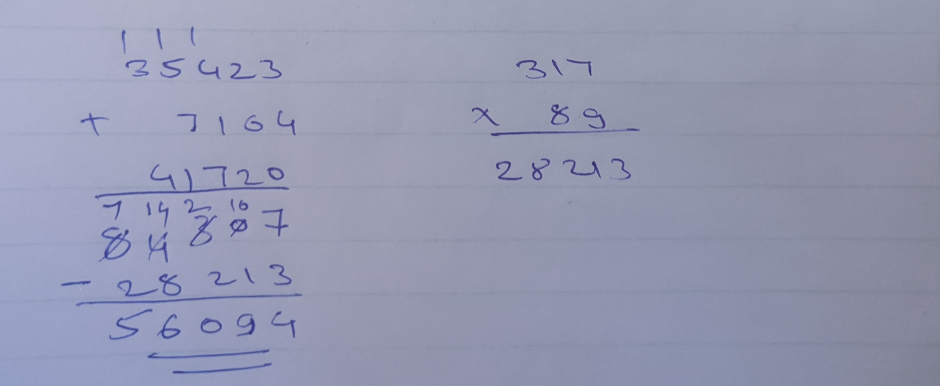 1 1 1
35423
+ 7164
41720
7 14 2 10
84307
- 28213
56094
317
x 89
28213